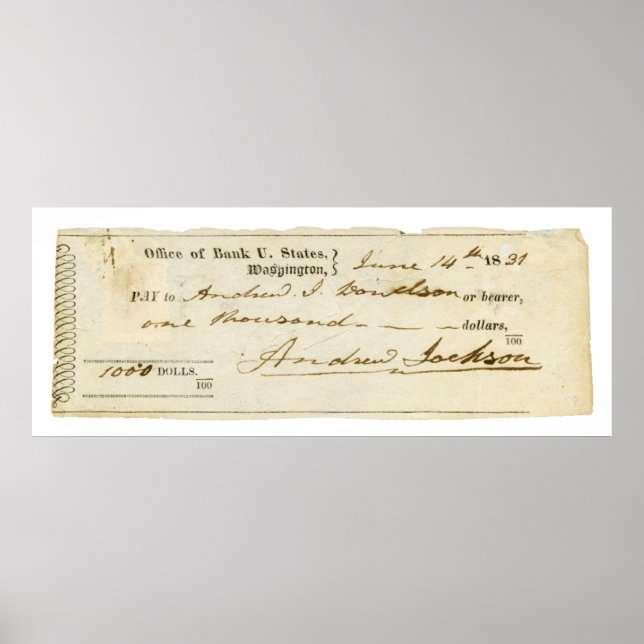 Office of Bank U. States,
Washington, } June 14th 1831
PAY to Andrew J. Donelson or bearer,
one thousand - - - dollars,
100
Andrew Jackson
1000 DOLLS.
100